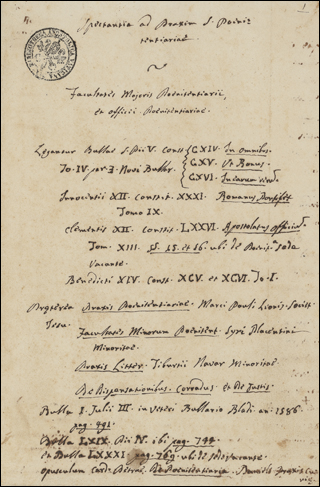 1
Spectantia ad Praxim S. Poeni-
tentiariae
Facultates Majoris Poenitentiarii,
et officii Poenitentiariae.
Legantur Bullae S. Pii V. const. CXIV. In omnibus.
To. IV. par. 3. Novi Bullar. CXV. Ut Bonus.
CXVI.
Innocentii XII. constit. XXXI. Romanus Pontifex
Tomo IX.
Clementis XII. Constit. LXXVI. Apostolatus officium
Tom. XIII. §. 15. et 16. ubi de Poenit. Sede
Vacante.
Benedicti XIV. Const. XCV. et XCVI. To. I.
Praeterea Praxis Poenitentiariae Marci Pauli Leonis.
Facultates Minorum Poenitent. Syri Placentini
Minoritae.
Praxis Litter. Tiburtii Navar Minoritae
De Dispensationibus, Corradus, et De Justis.
Bulla I. Julii III. in Veteri Bullario Bladi an. 1586
pag. 491.
Bulla LXIX. Pii IV. ibi pag. 744.
et Bulla LXXXI. pag. 769. ubi de Sede vacante.
opusculum Card. Petrae De Poenitentiaria.